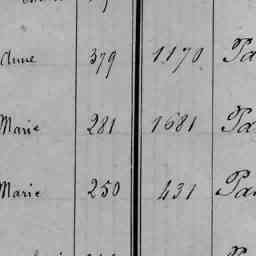 Anne 379 1170 Pa
Marie 281 1681 Pa
Marie 250 431 Pa